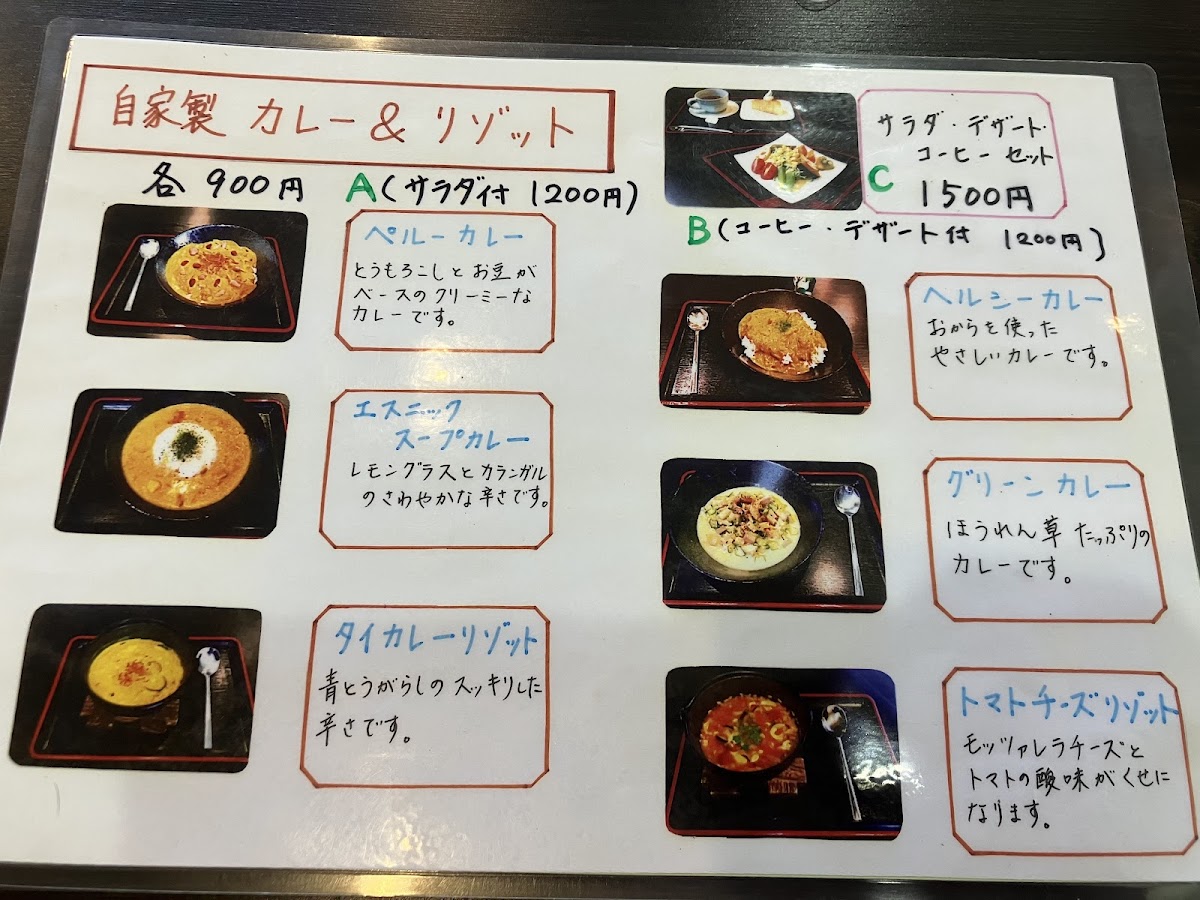 自家製 カレー & リゾット
各 900円 A(サラダ付 1200円)
ペルーカレー
とうもろこしとお豆が
ベースのクリーミーな
カレーです。
エスニック
スープカレー
レモングラスとカランガル
のさわやかな辛さです。
タイカレーリゾット
青とうがらしのスッキリした
辛さです。
サラダ・デザート・
コーヒーセット
C 1500円
B(コーヒー・デザート付 1200円)
ヘルシーカレー
おからを使った
やさしいカレーです。
グリーンカレー
ほうれん草たっぷりの
カレーです。
トマトチーズリゾット
モッツァレラチーズと
トマトの酸味がくせに
なります。